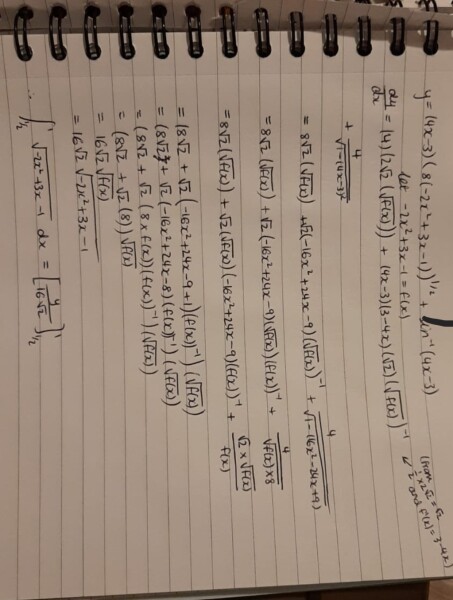 y = (4x-3)(8(-2x²+3x-1))^1/2 + sin⁻¹(4x-3)
let -2x²+3x-1 = f(x)
(from ½×2√2=√2 and f'(x)=3-4x)
dy/dx = (4)(2√2(√f(x))) + (4x-3)(3-4x)(√2)(√f(x))⁻¹
+ 4/√1-(4x-3)²
= 8√2(√f(x)) + √2(-16x²+24x-9)(√f(x))⁻¹ + 4/√1-(16x²-24x+9)
= 8√2(√f(x)) + √2(-16x²+24x-9)(√f(x))(f(x))⁻¹ + 4/√f(x)×8
= 8√2(√f(x)) + √2(√f(x))(-16x²+24x-9)(f(x))⁻¹ + √2×√f(x)/f(x)
= (8√2 + √2(-16x²+24x-9+1)(f(x))⁻¹)(√f(x))
= (8√2 + √2(-16x²+24x-8)(f(x))⁻¹)(√f(x))
= (8√2 + √2(8×f(x))(f(x))⁻¹)(√f(x))
= (8√2 + √2(8))√f(x)
= 16√2 √f(x)
= 16√2 √-2x²+3x-1
∴ ∫¹₁/₂ √-2x²+3x-1 dx = [y/16√2]¹₁/₂